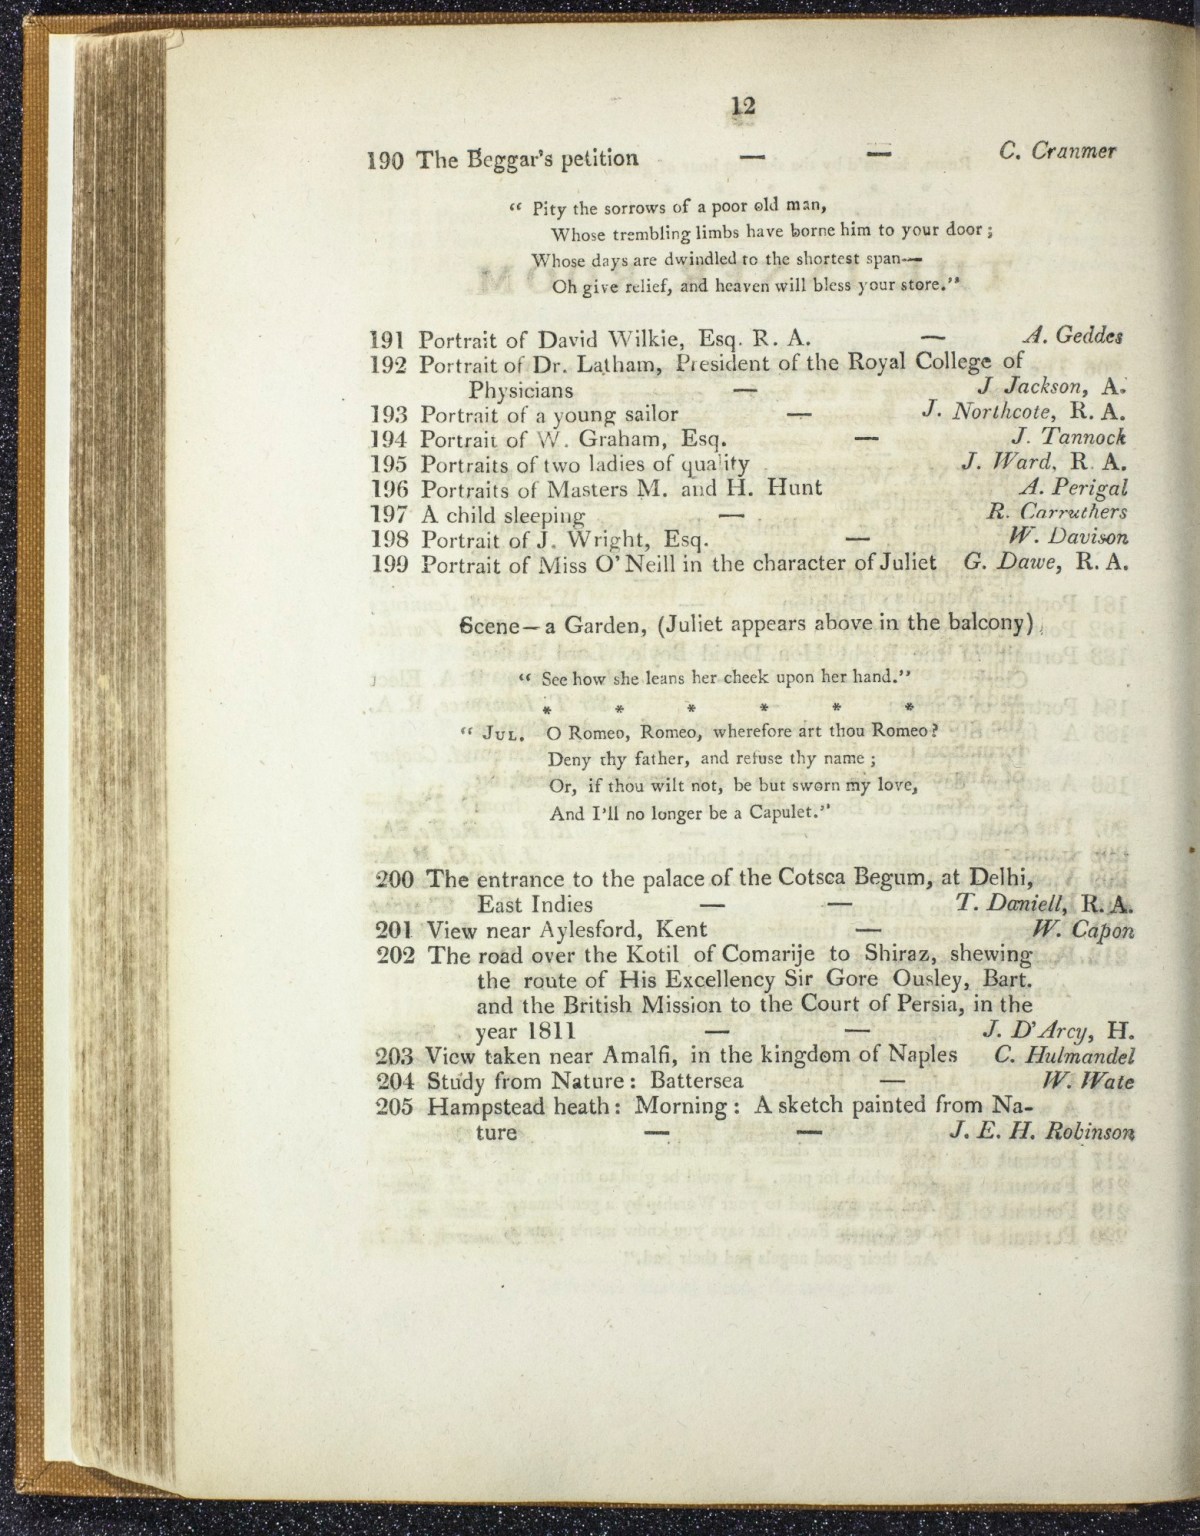 12
190 The Beggar's petition — — C. Cranmer
“ Pity the sorrows of a poor old man,
Whose trembling limbs have borne him to your door ;
Whose days are dwindled to the shortest span—
Oh give relief, and heaven will bless your store.”
191 Portrait of David Wilkie, Esq. R. A. — A. Geddes
192 Portrait of Dr. Latham, President of the Royal College of
Physicians — J Jackson, A.
193 Portrait of a young sailor — J. Northcote, R. A.
194 Portrait of W. Graham, Esq. — J. Tannock
195 Portraits of two ladies of quality J. Ward, R. A.
196 Portraits of Masters M. and H. Hunt A. Perigal
197 A child sleeping — R. Carruthers
198 Portrait of J. Wright, Esq. — W. Davison
199 Portrait of Miss O'Neill in the character of Juliet G. Dawe, R. A.
Scene—a Garden, (Juliet appears above in the balcony)
“ See how she leans her cheek upon her hand.”
* * * * * *
“ JUL. O Romeo, Romeo, wherefore art thou Romeo?
Deny thy father, and refuse thy name ;
Or, if thou wilt not, be but sworn my love,
And I'll no longer be a Capulet.”
200 The entrance to the palace of the Cotsca Begum, at Delhi,
East Indies — — T. Daniell, R. A.
201 View near Aylesford, Kent — W. Capon
202 The road over the Kotil of Comarije to Shiraz, shewing
the route of His Excellency Sir Gore Ousley, Bart.
and the British Mission to the Court of Persia, in the
year 1811 — — J. D'Arcy, H.
203 View taken near Amalfi, in the kingdom of Naples C. Hulmandel
204 Study from Nature: Battersea — W. Wate
205 Hampstead heath: Morning: A sketch painted from Na-
ture — — J. E. H. Robinson